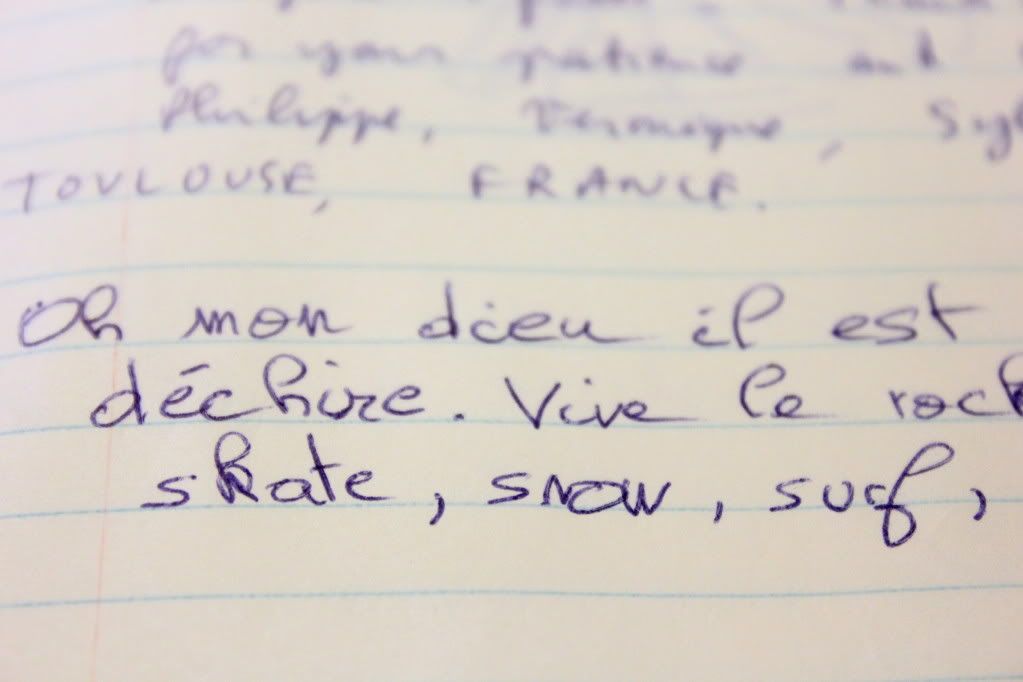 for your patience and
Philippe, Véronique, Syl
TOULOUSE, FRANCE.
Oh mon dieu il est
déchire. Vive le rock
skate, snow, surf,